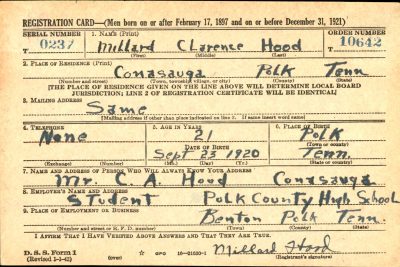 REGISTRATION CARD—(Men born on or after February 17, 1897 and on or before December 31, 1921)
SERIAL NUMBER 1. NAME (Print) ORDER NUMBER
T 0237 Millard Clarence Hood 10642
(First) (Middle) (Last)
2. PLACE OF RESIDENCE (Print)
Conasauga Polk Tenn
(Number and street) (Town, township, village, or city) (County) (State)
[THE PLACE OF RESIDENCE GIVEN ON THE LINE ABOVE WILL DETERMINE LOCAL BOARD
JURISDICTION; LINE 2 OF REGISTRATION CERTIFICATE WILL BE IDENTICAL]
3. MAILING ADDRESS
Same
(Mailing address if other than place indicated on line 2. If same insert word same)
4. TELEPHONE 5. AGE IN YEARS 6. PLACE OF BIRTH
None 21 Polk
DATE OF BIRTH (Town or county)
Sept 23 1920 Tenn.
(Exchange) (Number) (Mo.) (Day) (Yr.) (State or country)
7. NAME AND ADDRESS OF PERSON WHO WILL ALWAYS KNOW YOUR ADDRESS
Mr. C. A. Hood Conasauga
8. EMPLOYER'S NAME AND ADDRESS
Student Polk County High School
9. PLACE OF EMPLOYMENT OR BUSINESS
Benton Polk Tenn.
(Number and street or R. F. D. number) (Town) (County) (State)
I AFFIRM THAT I HAVE VERIFIED ABOVE ANSWERS AND THAT THEY ARE TRUE.
D. S. S. Form 1 Millard Hood
(Revised 1-1-42) (over) GPO 16—21630-1 (Registrant's signature)